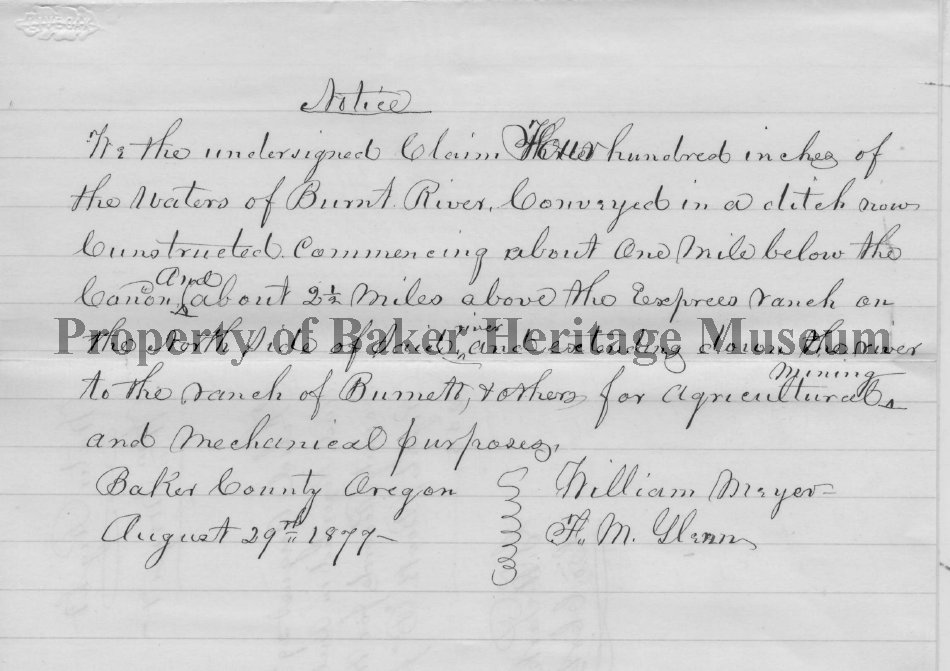 Notice
We the undersigned Claim hundred inches of
the waters of Burnt River, Conveyed in a ditch now
Cunstructed Commencing about One Mile below the
Canon And about 2½ Miles above the Exprees ranch on
the North Side of Said river and extending down the river
to the ranch of Burnett, & others for Agricultural Mining
and Mechanical purposes,
Baker County Oregon
August 29th 1877-
William Meyer
F. M. Glenn
Property of Baker Heritage Museum